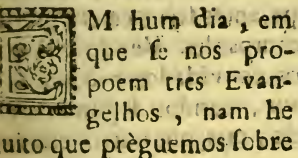 EM hum dia, em
que se nos pro-
poem tres Evan-
gelhos, nam he
uito que prèguemos sobre